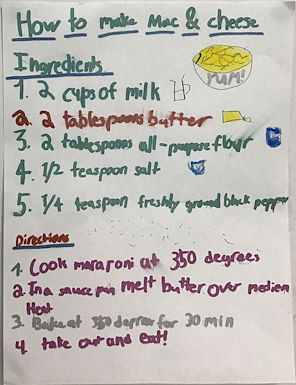 How to make Mac & cheese
YUM!
Ingredients
1. 2 cups of milk
2. 2 tablespoons butter
3. 2 tablespoons all-purpose flour
4. 1/2 teaspoon salt
5. 1/4 teaspoon freshly ground black pepper
Directions
1. Cook mararoni at 350 degrees
2. In a sauce pan melt butter over mediem
Heat
3. Bake at 350 degrees for 30 min
4. take out and eat!